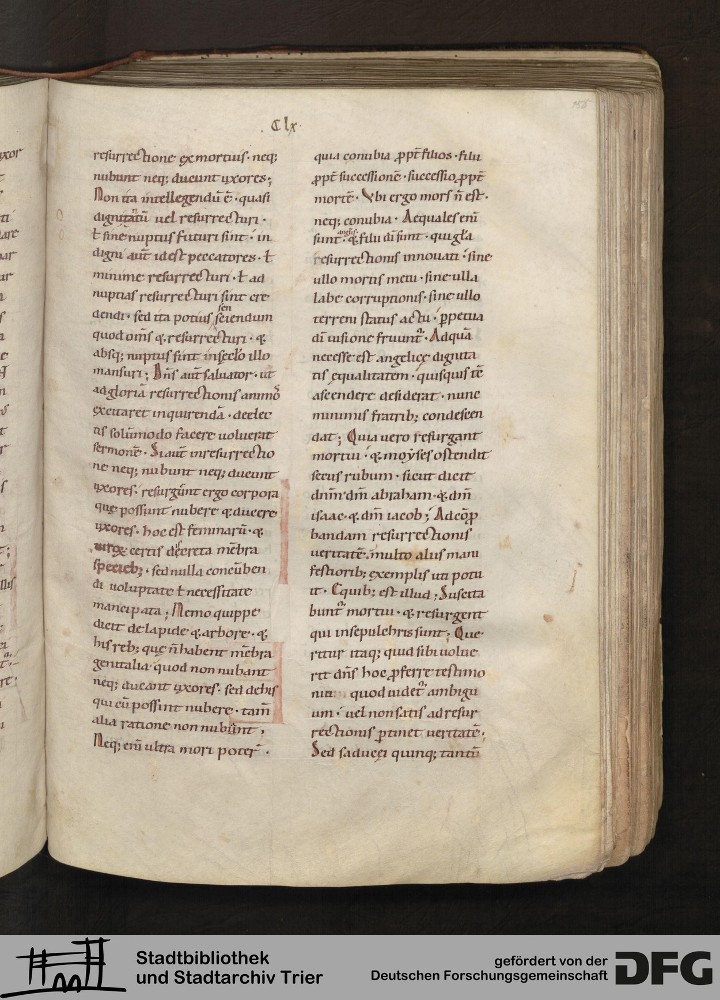 . Clx.
resurrectione ex mortuis· neq;
nubunt neq; ducunt uxores;
Non ita intellegendū ē· quasi
dignitatū uel resurrecturi·
ł sine nuptiis futuri sint· in
digni aut̄ id est peccatores· ł
minime resurrecturi· ł ad
nuptias resurrecturi sint cre
dendi· sed ita potius sciendum
quod om̄s & resurrecturi· &
absq; nuptiis sint in seclo illo
mansuri; Dn̄s aut̄ saluator· ut
ad gloriā resurrectionis animō
excitaret inquirendā· de elec
tis solūmodo facere uoluerat
sermonē· Si aut̄ in resurrectio
ne neq; nubunt neq; ducunt
uxores· resurgunt ergo corpora
quę possunt nubere & ducere
uxores· hoc est feminarū· &
certis discreta mēbra
specieb;· sed nulla concūben
di uoluptate ł necessitate
mancipata; Nemo quippe
dicit de lapide & arbore· &
his reb; quę n̄ habent mēbra
genitalia· quod non nubant
neq; ducant uxores· sed de his
qui cū possint nubere· tam̄
alia ratione non nubunt·
Neq; enī ultra mori poterˉ·
quia conubia ꝓpt̄ filios· filii
ꝓpt̄ successionē· successio ꝓpt̄
mortē· Vbi ergo mors n̄ est·
neq; conubia· Aequales enī
angłis
sunt· & filii dī sunt· qui gła
resurrectionis innouati· sine
ullo mortis metu· sine ulla
labe corruptionis· sine ullo
terreni status actu· ꝑpetua
dī uisione fruunt̄· Ad quā
necesse est angelicę dignita
tis ęqualitatem· quisquis
ascendere desiderat· nunc
minimis fratrib; condescen
dat; Quia uero resurgant
mortui· & moyses ostendit
secus rubum· sicut dicit
dnm̄ dm̄ abraham· & dm̄
isaac· & dm̄ iacob; Ad cōp
bandam resurrectionis
ueritatē· multo aliis mani
festiorib; exemplis uti potu
it· E quib; est illud; Suscita
bunt̄ mortui· & resurgent
qui in sepulchris sunt; Que
ritur itaq; quid sibi uolue
rit dn̄s hoc ꝓferre testimo
nium quod uidet̄ ambigu
um· uel non satis ad resur
rectionis ꝑtinet ueritatē·
Sed saducęi quinq; tantū
Stadtbibliothek
und Stadtarchiv Trier
gefördert von der
Deutschen Forschungsgemeinschaft
DFG